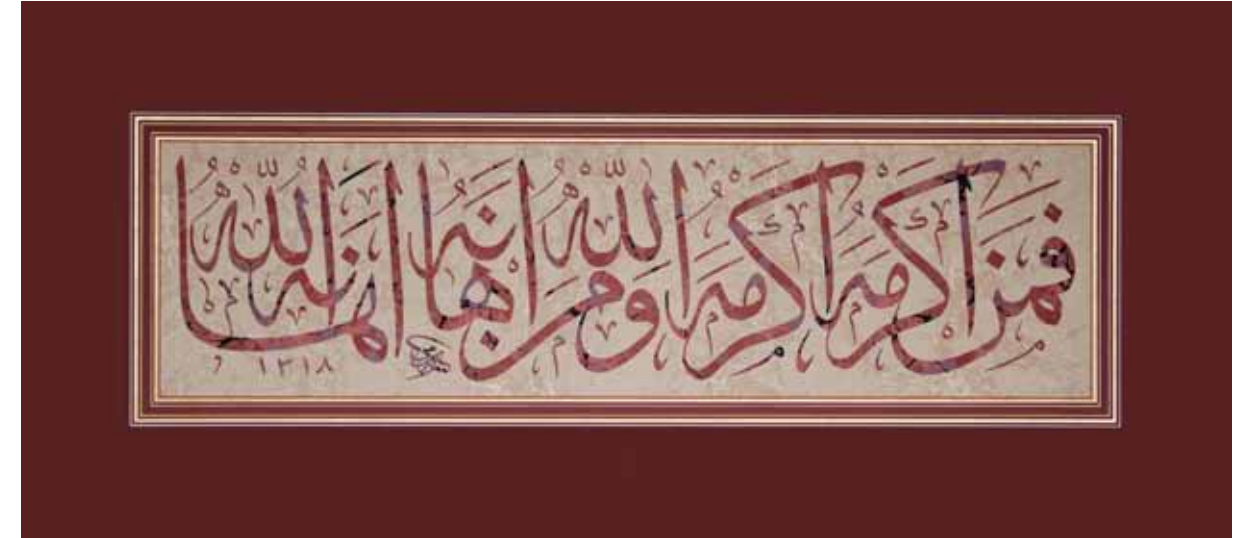 فمن اكرمه اكرمه الله ومن اهانه اهانه الله
١٣١٨